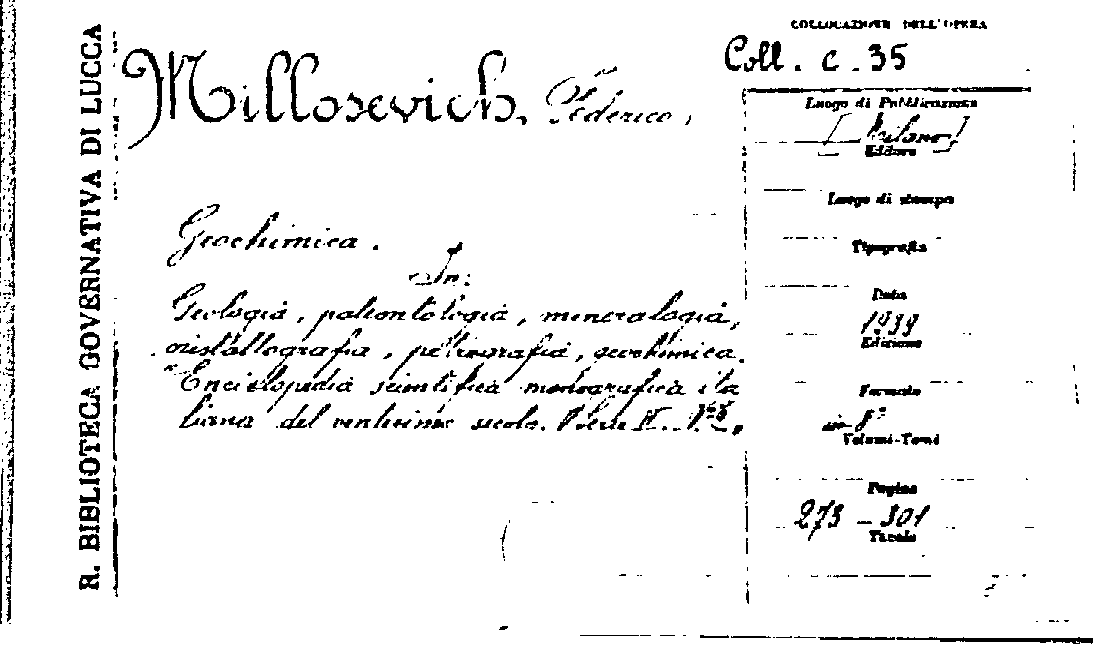 R. BIBLIOTECA GOVERNATIVA DI LUCCA
COLLOCAZIONE DELL'OPERA
Coll. c. 35
Millosevich, Federico,
Geochimica.
In:
Geologia, paleontologia, mineralogia,
cristallografia, petrografia, geochimica.
Enciclopedia scientifica monografica ita
liana del ventesimo secolo. Serie II.
Luogo di Pubblicazione
[Milano]
Editore
Luogo di stampa
Tipografia
Data
1939
Edizione
Formato
in 8°
Volumi-Tomi
Pagine
273 - 301
Tavole